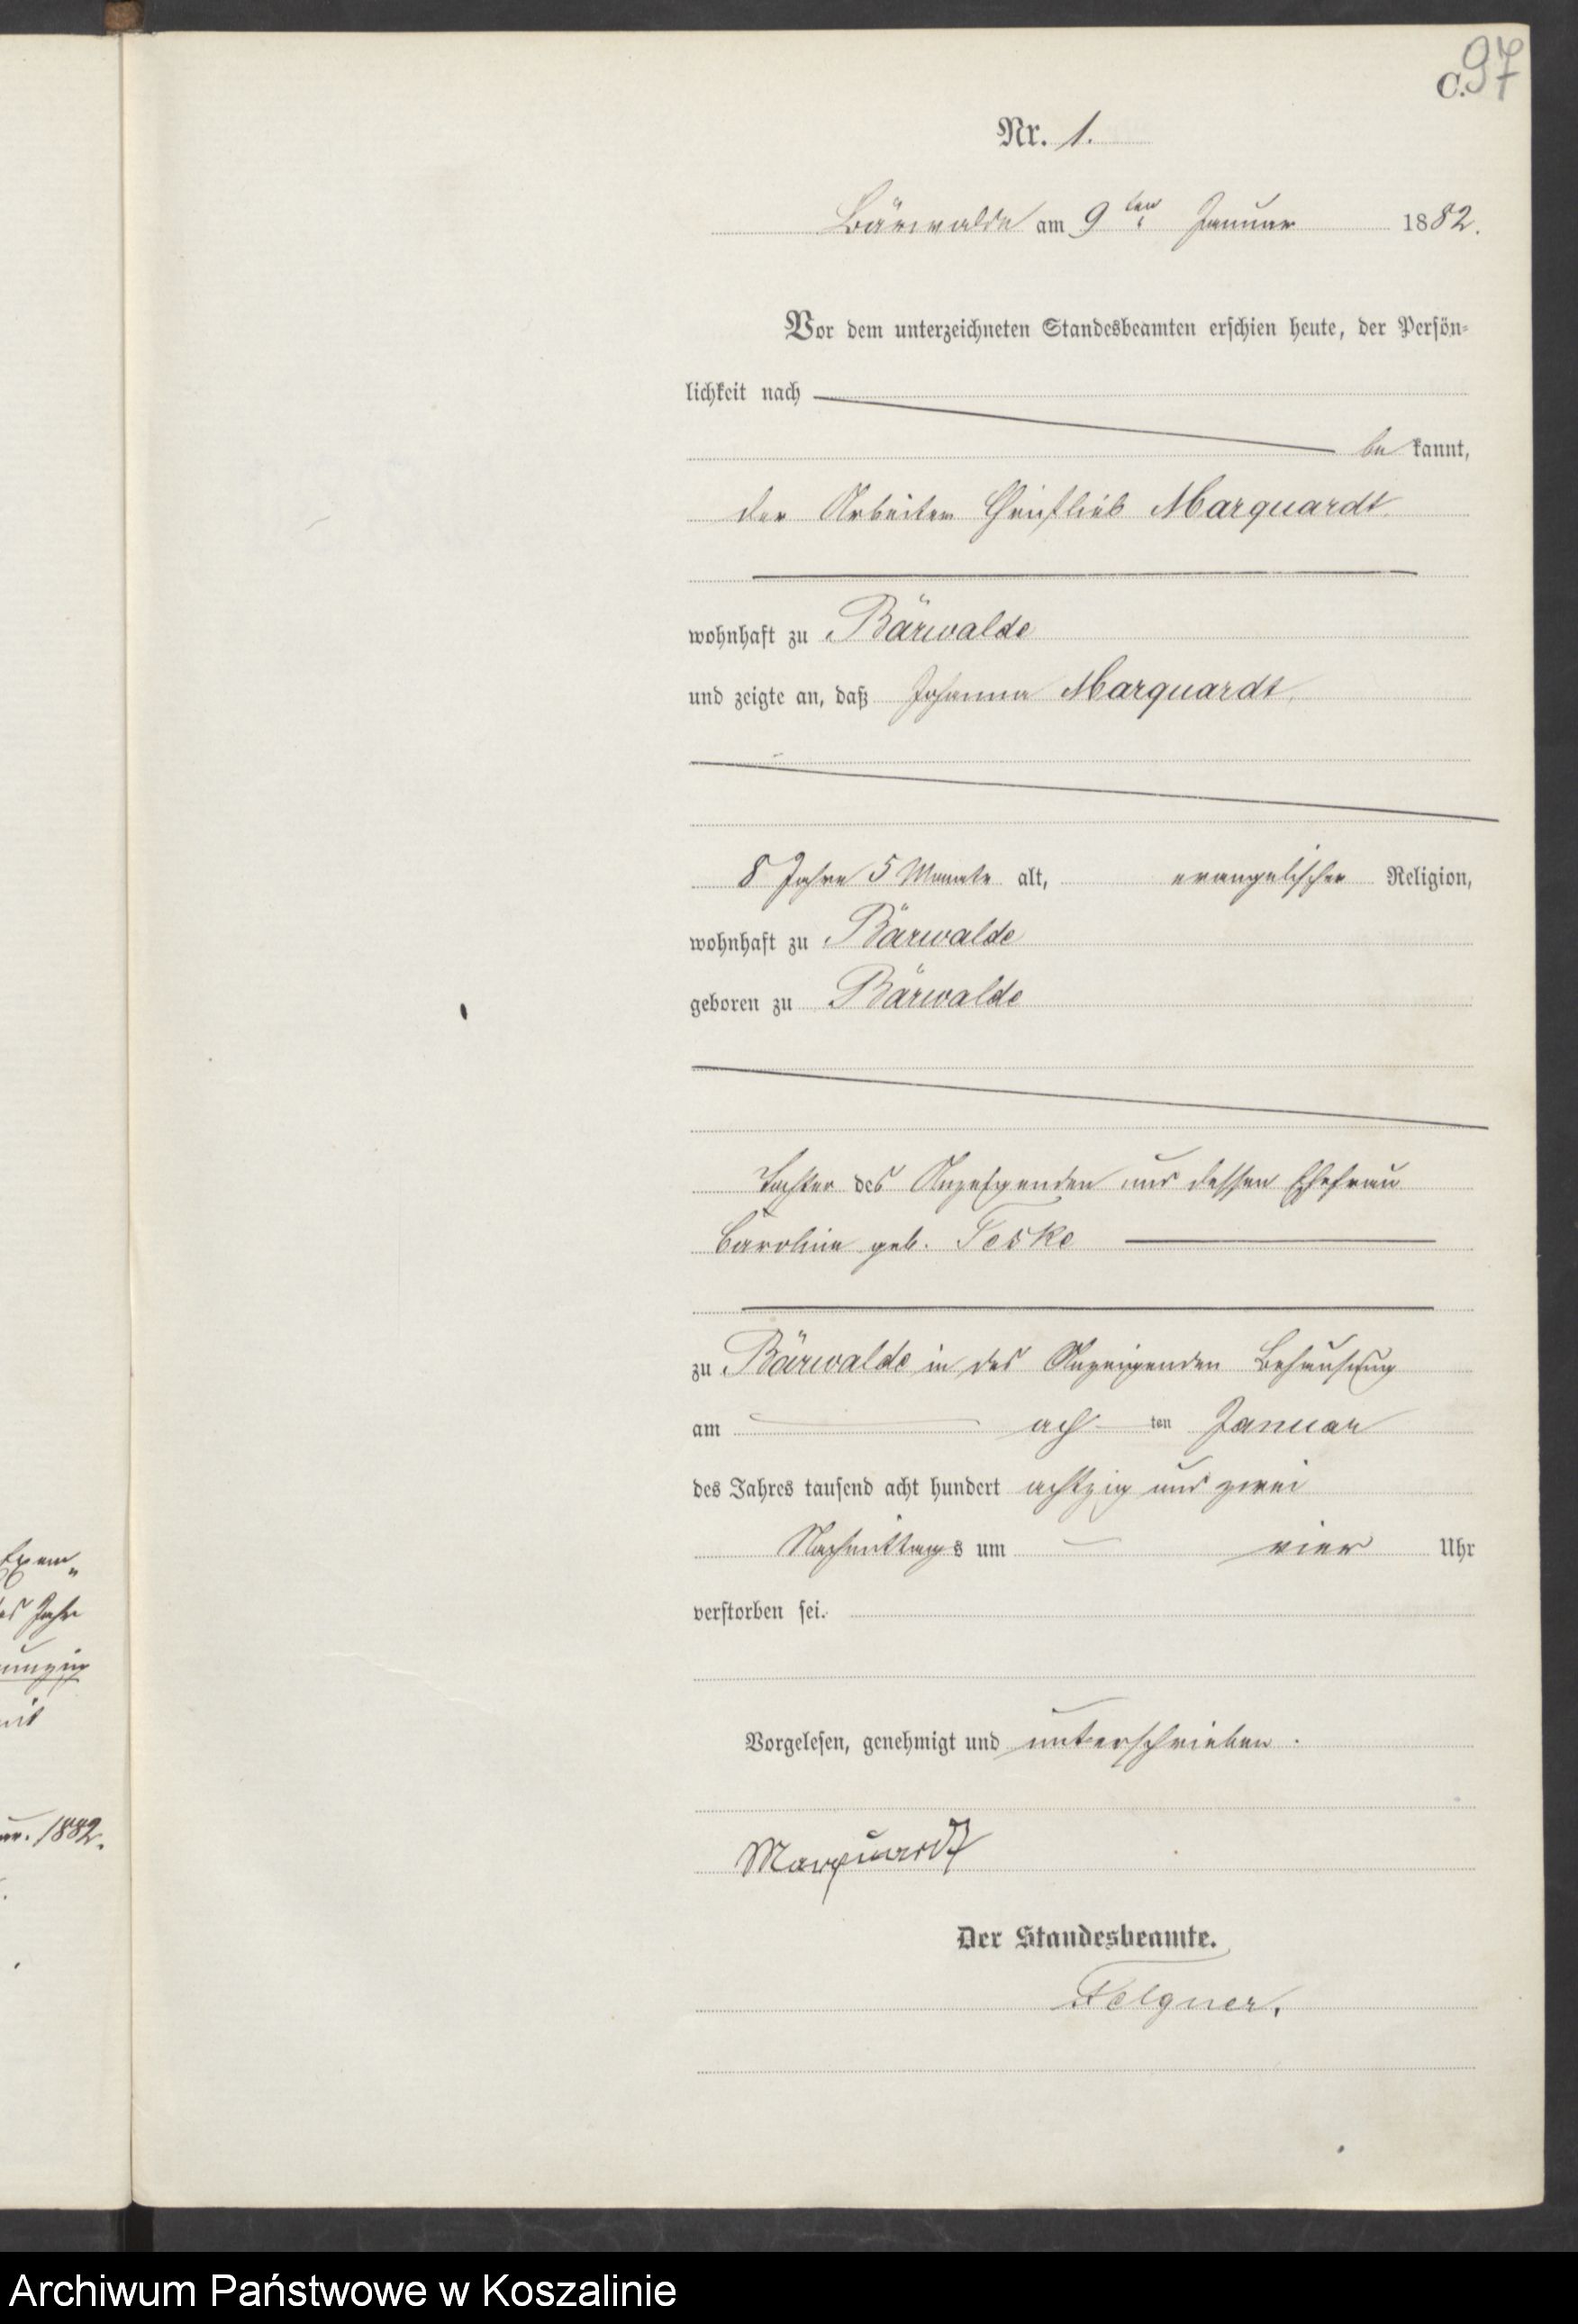 C.
97
Nr. 1.
Bärwalde am 9ten Januar 1882.
Vor dem unterzeichneten Standesbeamten erschien heute, der Persön-
lichkeit nach
be kannt,
der Arbeiter Christlieb Marquardt
wohnhaft zu Bärwalde
und zeigte an, daß Johanna Marquardt,
8 Jahre 5 Monate alt, evangelischer Religion,
wohnhaft zu Bärwalde
geboren zu Bärwalde
Tochter des Anzeigenden und dessen Ehefrau
Caroline geb. Teske
zu Bärwalde in des Anzeigenden Behausung
am ach ten Januar
des Jahres tausend acht hundert achtzig und zwei
Nachmittags um vier Uhr
verstorben sei.
Vorgelesen, genehmigt und unterschrieben.
Marquardt
Der Standesbeamte.
Felgner.
Exem„
des Jahr
mit
1882.
Archiwum Państwowe w Koszalinie